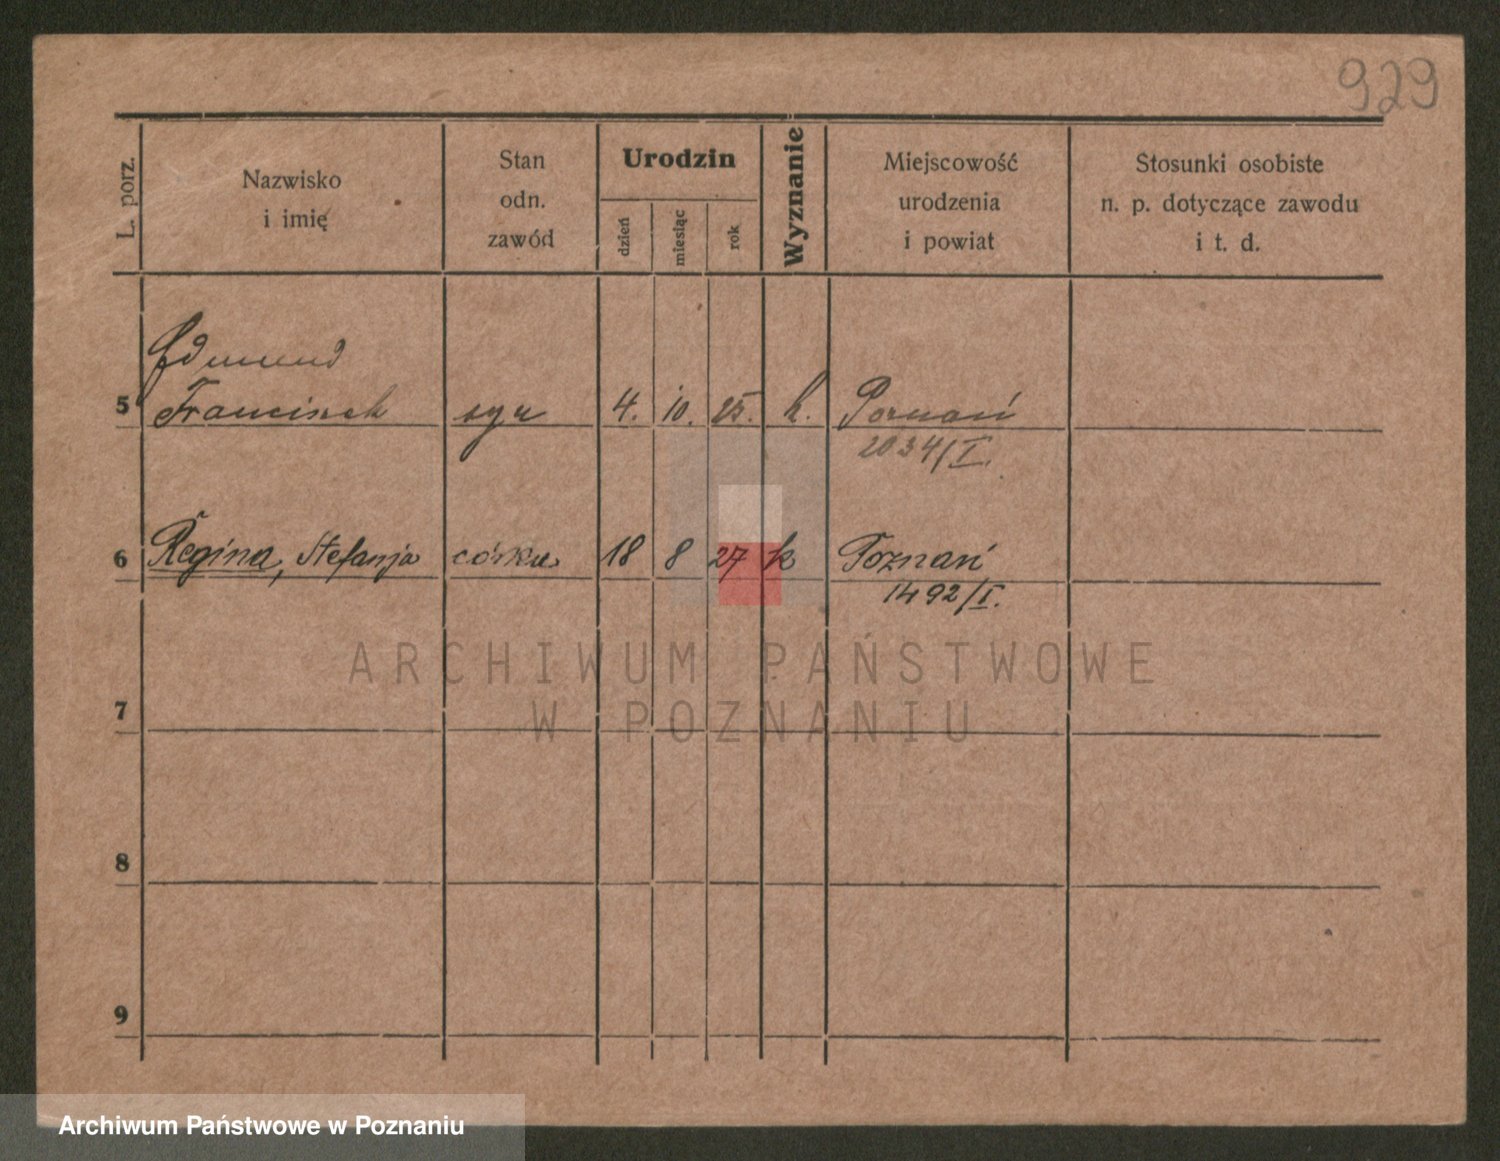 929
L. porz.
Nazwisko
i imię
Stan
odn.
zawód
Urodzin
dzień
miesiąc
rok
Wyznanie
Miejscowość
urodzenia
i powiat
Stosunki osobiste
n. p. dotyczące zawodu
i t. d.
Edmund
5 Franciszek syn 4. 10. 25. k. Poznań
2034/I.
6 Regina, Stefanja córka 18 8 27 k Poznań
1492/I.
ARCHIWUM PAŃSTWOWE
W POZNANIU
7
8
9
Archiwum Państwowe w Poznaniu